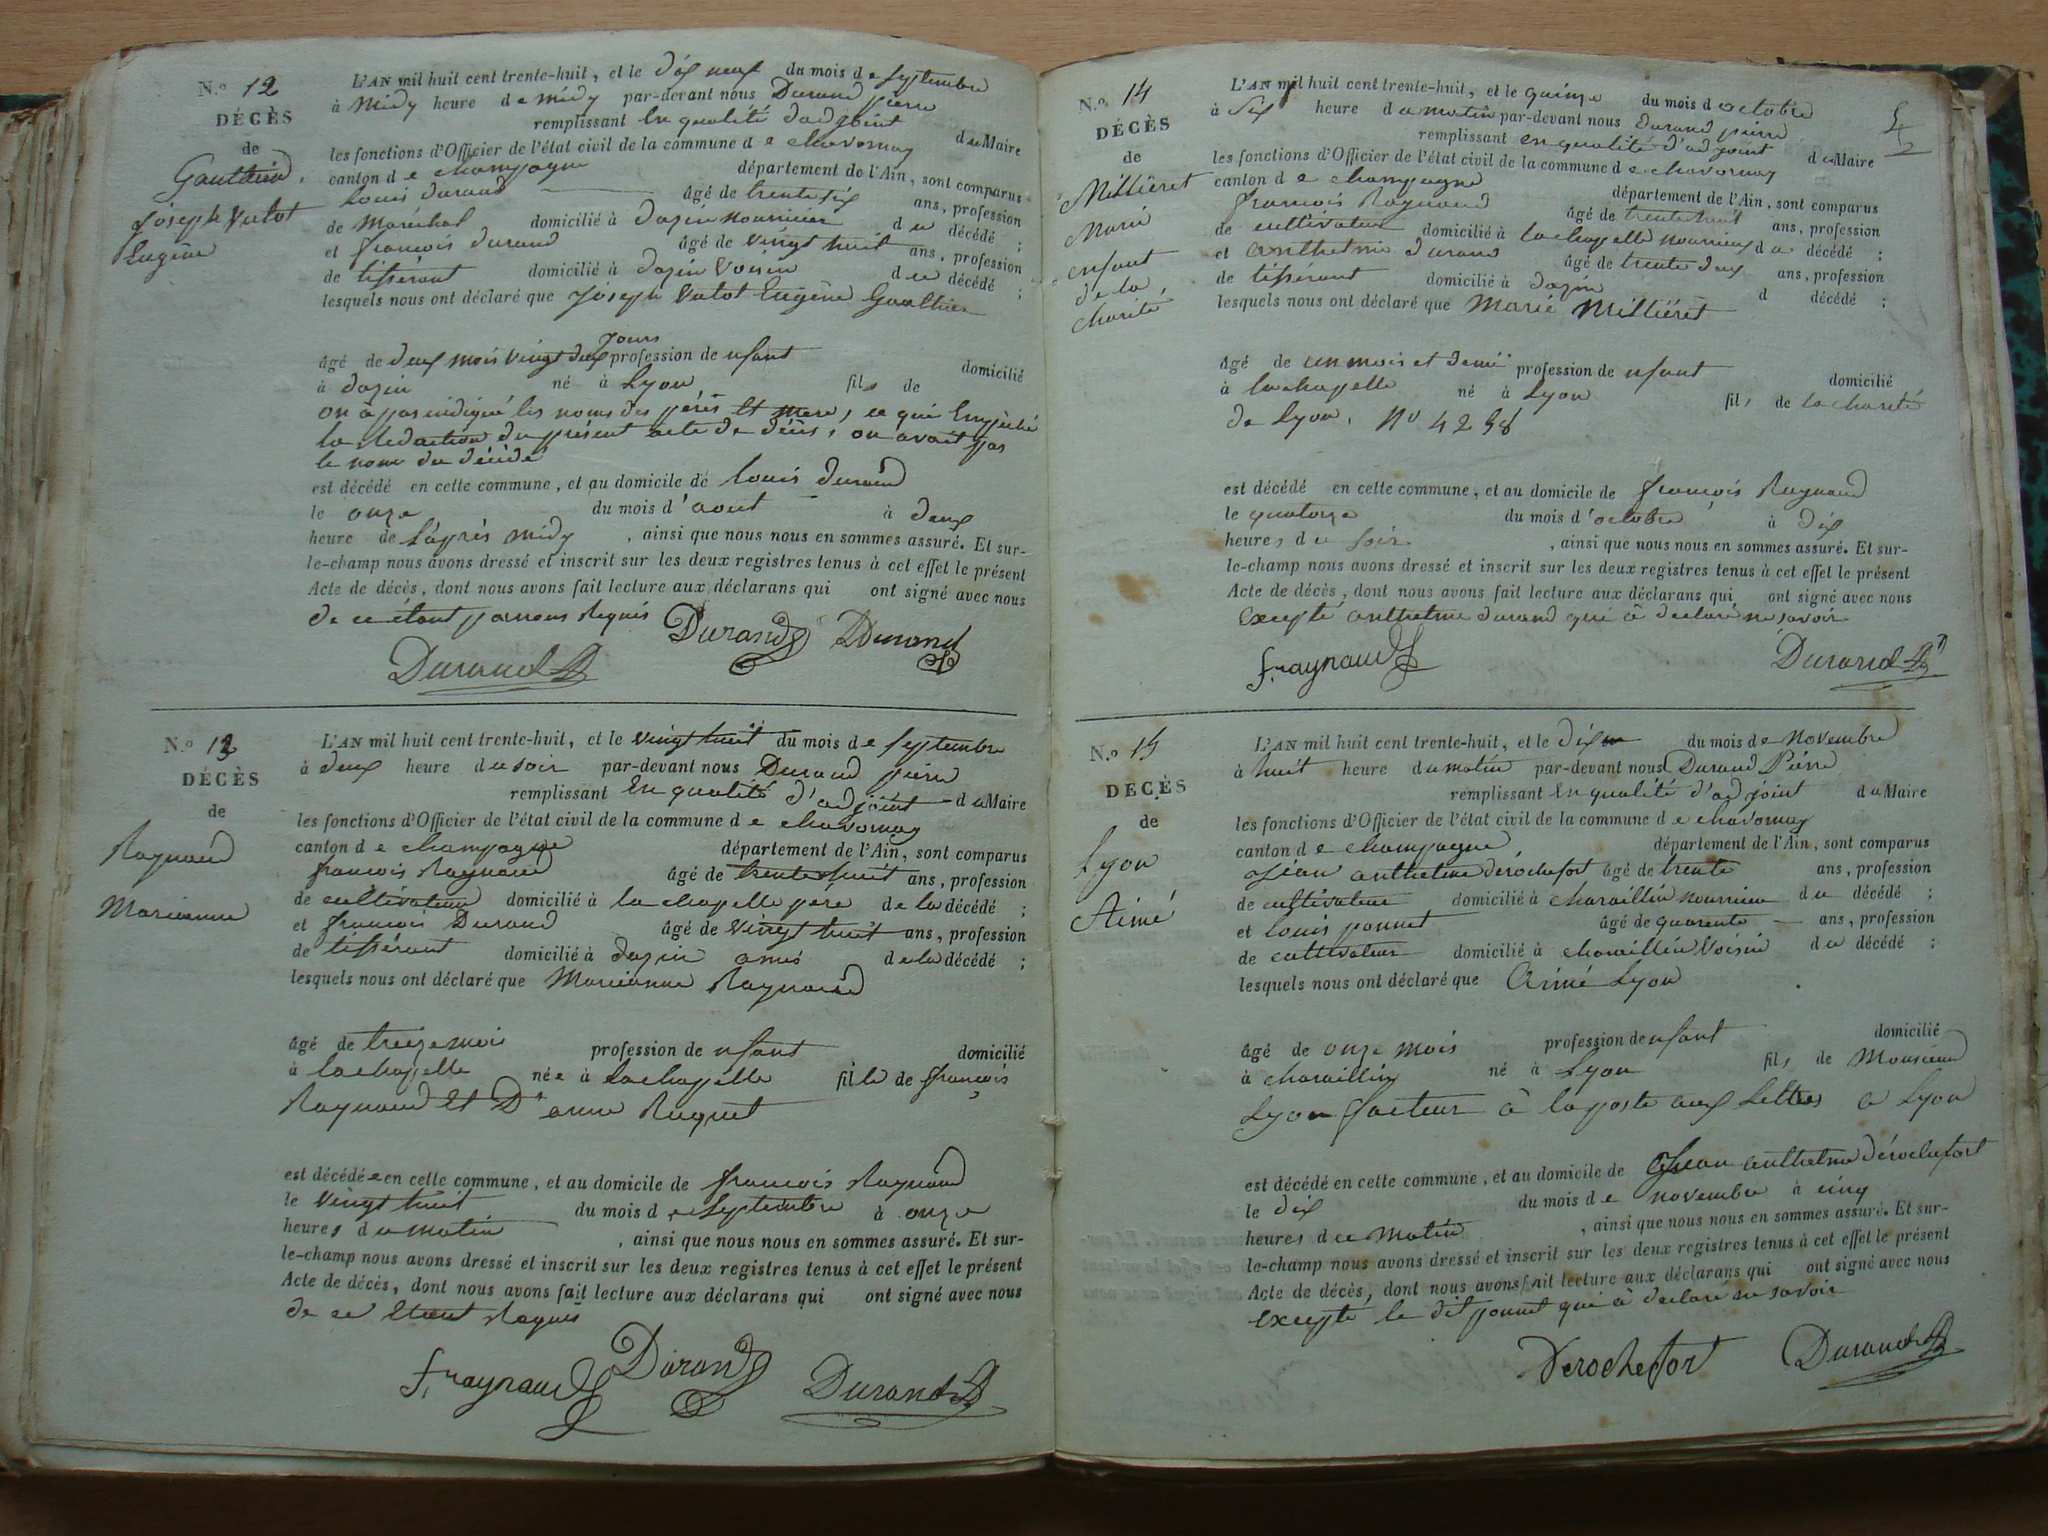 N.o 12
DÉCÈS
de
Gaulthier
Joseph Vulot
Eugène
L'AN mil huit cent trente-huit, et le dix neuf du mois de septembre
à midy heure de midy par-devant nous Durand pierre
remplissant en qualité d'adjoint du Maire
les fonctions d'Officier de l'état civil de la commune de chavornay
canton de champagne département de l'Ain, sont comparus
Louis durand âgé de trente six ans, profession
de maréchal domicilié à dazin nourricier du décédé ;
et françois durand âgé de vingt huit ans, profession
de tisserant domicilié à dazin voisin du décédé ;
lesquels nous ont déclaré que joseph Vulot Eugène Gaulthier
jours
âgé de deux mois vingt deux profession de nfant domicilié
à dazin né à Lyon fils de
on à pas indiqué les noms des pères et mere, ce qui Empeché
la Rédaction du présent acte de décès, on avait pas
le nom du décédé
est décédé en cette commune, et au domicile de Louis durand
le onze du mois d'aout à deux
heure de l'après midy , ainsi que nous nous en sommes assuré. Et sur-
le-champ nous avons dressé et inscrit sur les deux registres tenus à cet effet le présent
Acte de décès, dont nous avons fait lecture aux déclarans qui ont signé avec nous
de ce étant par nous Requis
Durand Durand
Durand
N.o 13
DÉCÈS
de
Raynaud
Marianne
L'AN mil huit cent trente-huit, et le vingt huit du mois de septembre
à deux heure du soir par-devant nous Durand pierre
remplissant En qualité d'adjoint du Maire
les fonctions d'Officier de l'état civil de la commune de chavornay
canton de champagne département de l'Ain, sont comparus
françois Raynaud âgé de trente huit ans, profession
de cultivateur domicilié à la chapelle père de la décédé ;
et françois Durand âgé de vingt huit ans, profession
de tisserant domicilié à dazin amis de la décédé ;
lesquels nous ont déclaré que Marianne Raynaud
âgé de treize mois profession de nfant domicilié
à lachapelle née à lachapelle fille de françois
Raynaud et De anne Ruquet
est décédée en cette commune, et au domicile de françois Raynaud
le vingt huit du mois de Septembre à onze
heures du matin , ainsi que nous nous en sommes assuré. Et sur-
le-champ nous avons dressé et inscrit sur les deux registres tenus à cet effet le présent
Acte de décès, dont nous avons fait lecture aux déclarans qui ont signé avec nous
de ce Etant Requis
f. raynaud Durand Durand
N.o 14
DÉCÈS
de
Milliéret
Marie
enfant
de la
charité
L'AN mil huit cent trente-huit, et le quinze du mois d octobre
à six heure du matin par-devant nous durand pierre
remplissant en qualité d'adjoint du Maire
les fonctions d'Officier de l'état civil de la commune de chavornay
canton de champagne département de l'Ain, sont comparus
françois Raynaud âgé de trente huit ans, profession
de cultivateur domicilié à lachapelle nourricier du décédé ;
et anthelme durand âgé de trente deux ans, profession
de tisserant domicilié à dazin d décédé ;
lesquels nous ont déclaré que Marie Milliéret
âgé de un mois et demi profession de nfant domicilié
à lachapelle né à Lyon fils de la charité
de Lyon. No 4298
est décédé en cette commune, et au domicile de françois Raynaud
le quatorze du mois d'octobre à dix
heures du soir , ainsi que nous nous en sommes assuré. Et sur-
le-champ nous avons dressé et inscrit sur les deux registres tenus à cet effet le présent
Acte de décès, dont nous avons fait lecture aux déclarans qui ont signé avec nous
excepté anthelme durand qui à declaré ne savoir
f. raynaud Durand
N.o 15
DÉCÈS
de
Lyon
Aimé
L'AN mil huit cent trente-huit, et le dix du mois de novembre
à huit heure du matin par-devant nous Durand Pierre
remplissant En qualité d'adjoint du Maire
les fonctions d'Officier de l'état civil de la commune de chavornay
canton de champagne département de l'Ain, sont comparus
Jean anthelme derochefort âgé de trente ans, profession
de cultivateur domicilié à charaillin nourricier du décédé ;
et Louis ponnet âgé de quarente ans, profession
de cultivateur domicilié à charaillin voisin du décédé ;
lesquels nous ont déclaré que Aimé Lyon
âgé de onze mois profession de nfant domicilié
à charaillin né à Lyon fils de Monsieur
Lyon facteur à la poste aux Lettres a Lyon
est décédé en cette commune, et au domicile de Jean anthelme dérochefort
le dix du mois de novembre à cinq
heures du matin , ainsi que nous nous en sommes assuré. Et sur-
le-champ nous avons dressé et inscrit sur les deux registres tenus à cet effet le présent
Acte de décès, dont nous avons fait lecture aux déclarans qui ont signé avec nous
excepté le dit ponnet qui à declaré ne savoir
Derochefort Durand